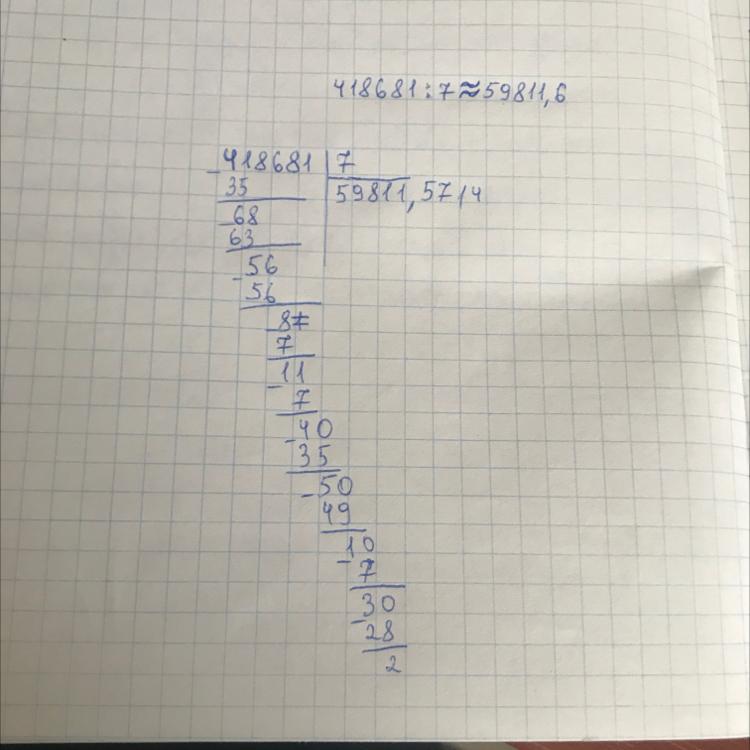 418681:7≈59811,6
-418681 | 7
35 59811,5714
-68
63
-56
56
-8
7
-11
7
-40
35
-50
49
-10
7
-30
28
2